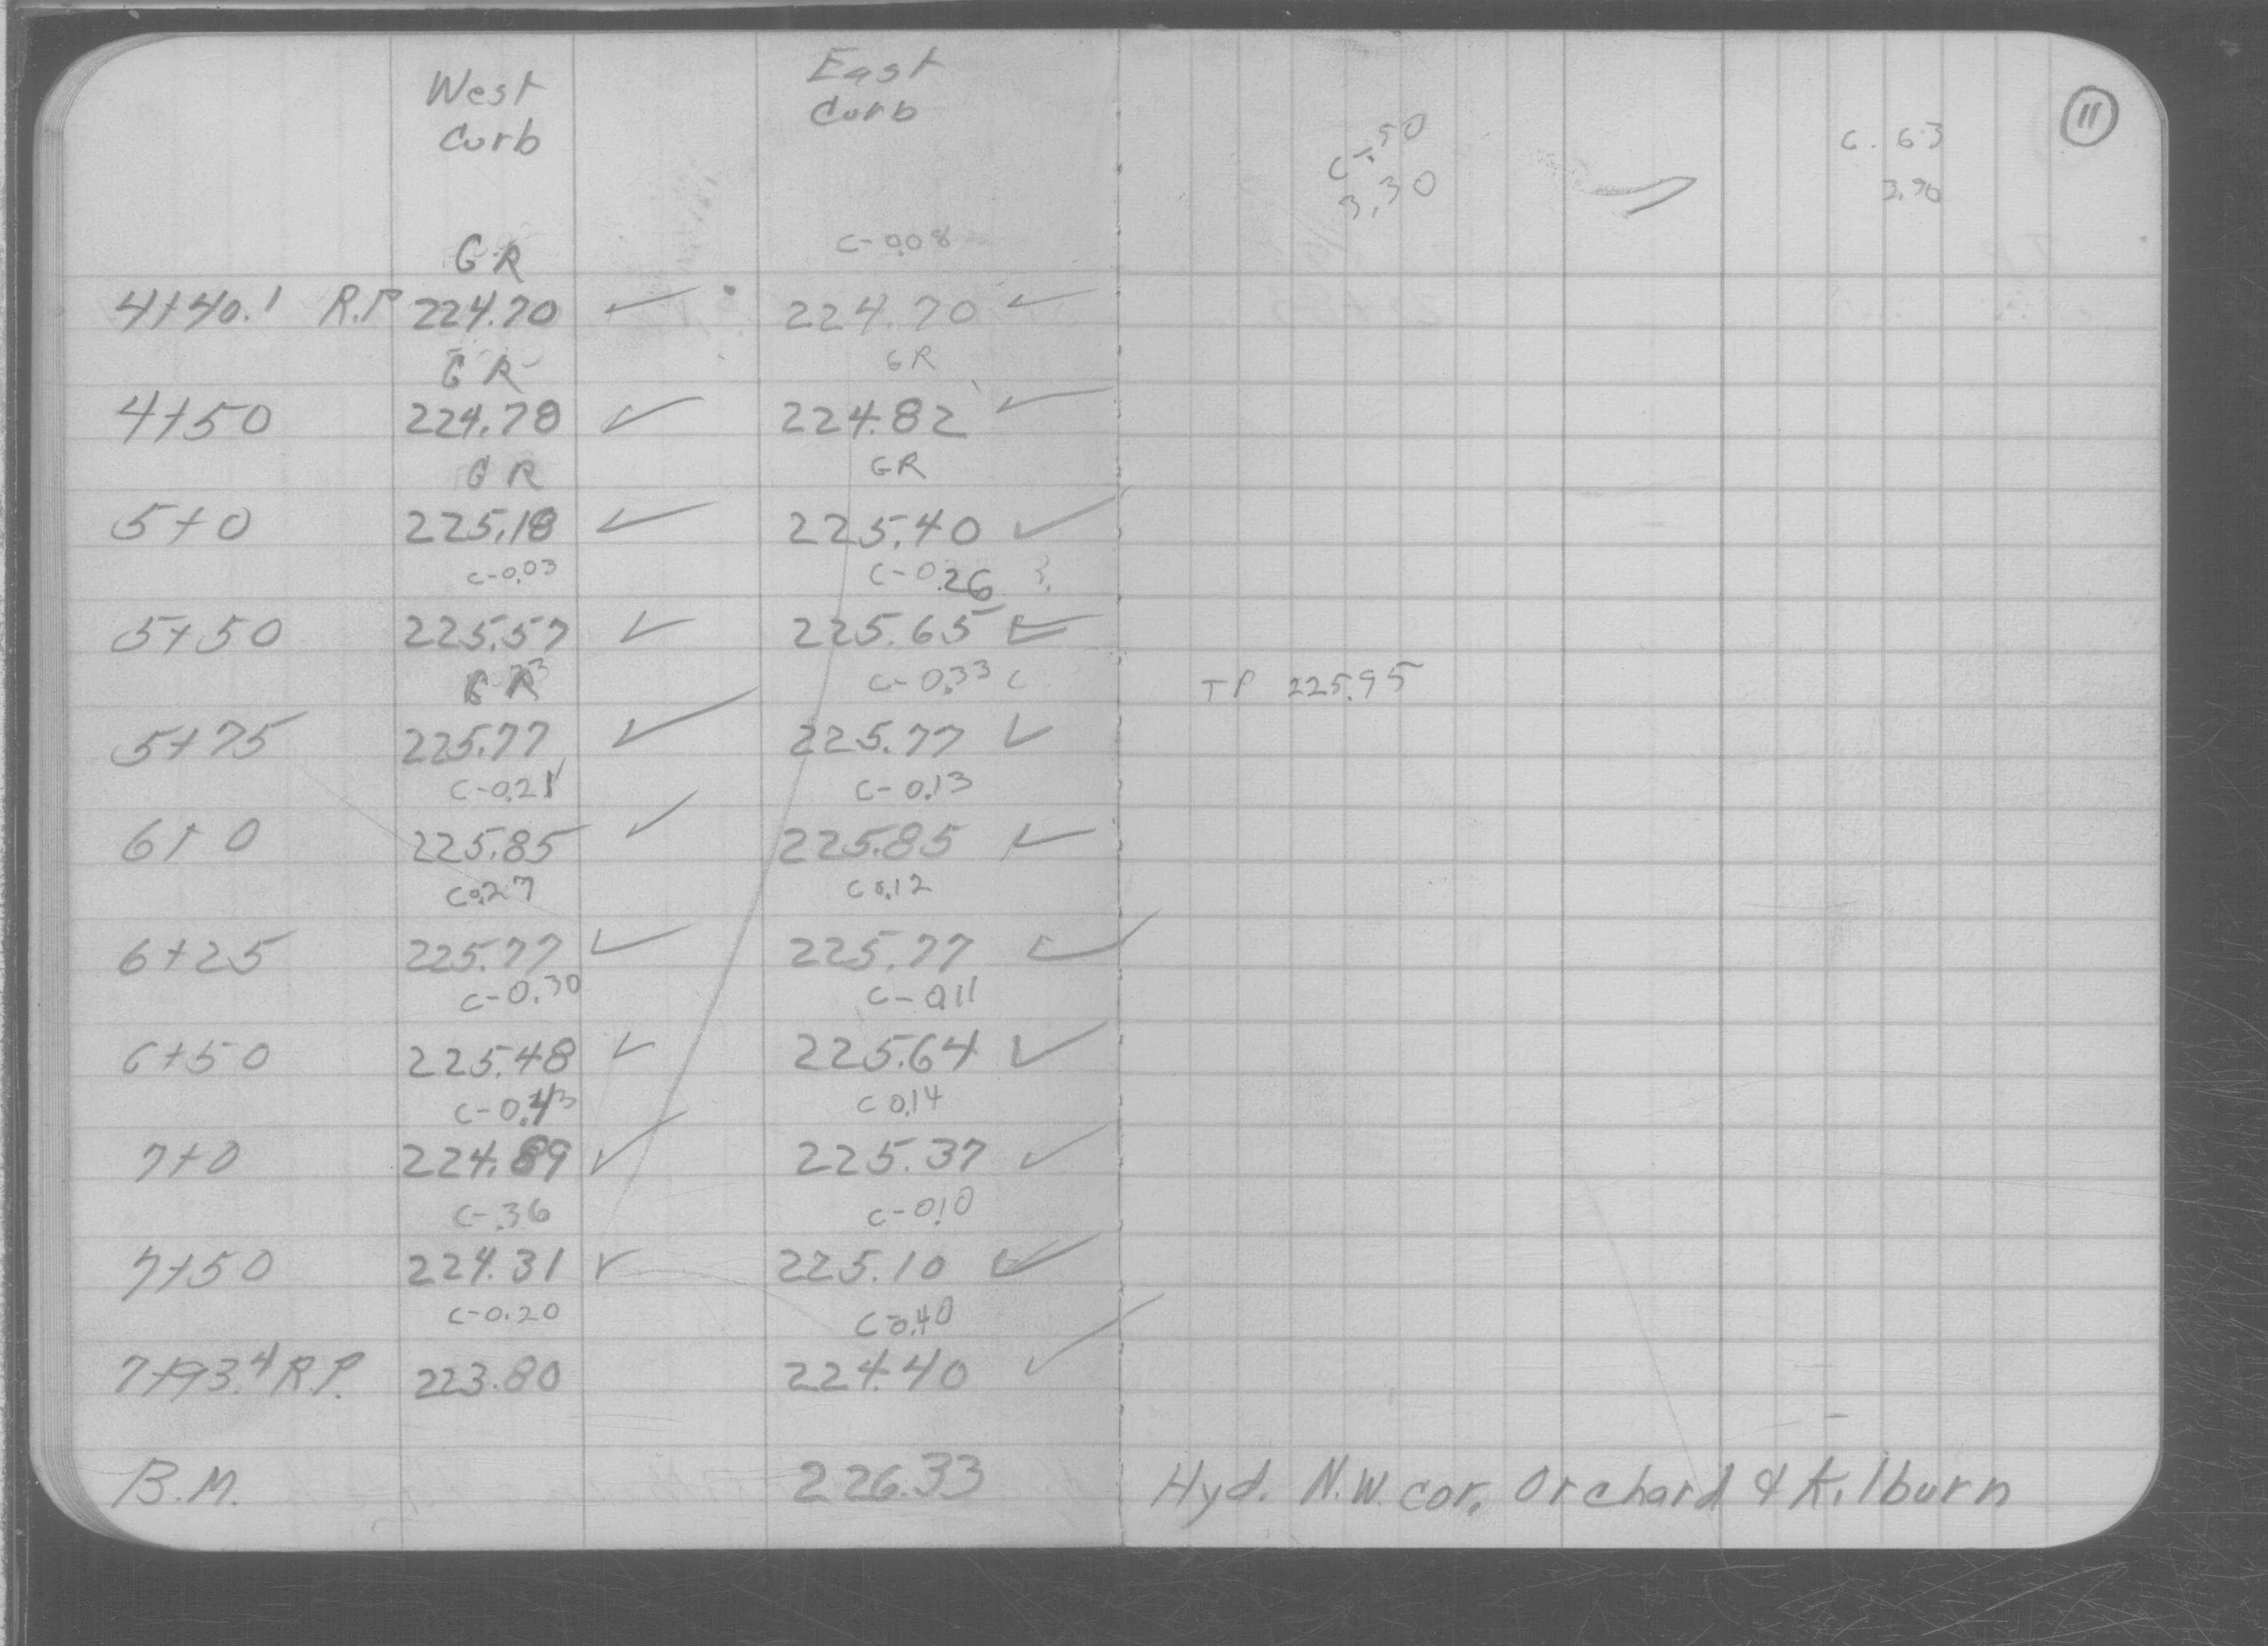 West East
Curb Curb
11
C-.50 C.63
3.30 3.90
GR C-0.08
4+40.1 R.P 224.70 ✓ 224.70 ✓
GR GR
4+50 224.78 ✓ 224.82 ✓
GR GR
5+0 225.18 ✓ 225.40 ✓
C-0.03 C-0.26
5+50 225.57 ✓ 225.65 ✓
GR C-0.33
TP 225.95
5+75 225.77 ✓ 225.77 ✓
C-0.21 C-0.13
6+0 225.85 ✓ 225.85 ✓
C0.27 C0.12
6+25 225.77 ✓ 225.77 ✓
C-0.30 C-0.11
6+50 225.48 ✓ 225.64 ✓
C-0.43 C0.14
7+0 224.89 ✓ 225.37 ✓
C-.36 C-0.10
7+50 224.31 ✓ 225.10 ✓
C-0.20 C-0.40
7+93.4 R.P. 223.80 224.40 ✓
B.M. 226.33 Hyd. N.W. cor. Orchard & Kilburn